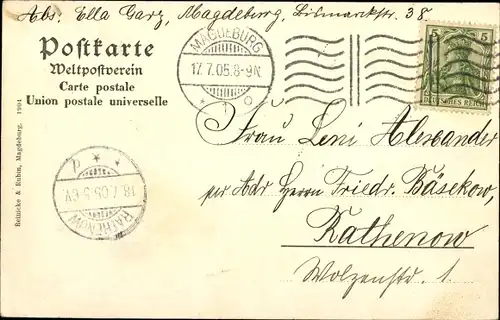 Abs: Ella Garz, Magdeburg, Bismarckstr. 38.
Postkarte
Weltpostverein
Carte postale
Union postale universelle
MAGDEBURG
17.7.05.8-9N
* 1 o
5 5
DEUTSCHES REICH
Frau Leni Alexander
per Adr Herrn Friedr. Bäsekow,
Rathenow
Wolzenstr. 1.
RATHENOW
18.7.05.5-6V.
Reinicke & Rubin, Magdeburg. 1904